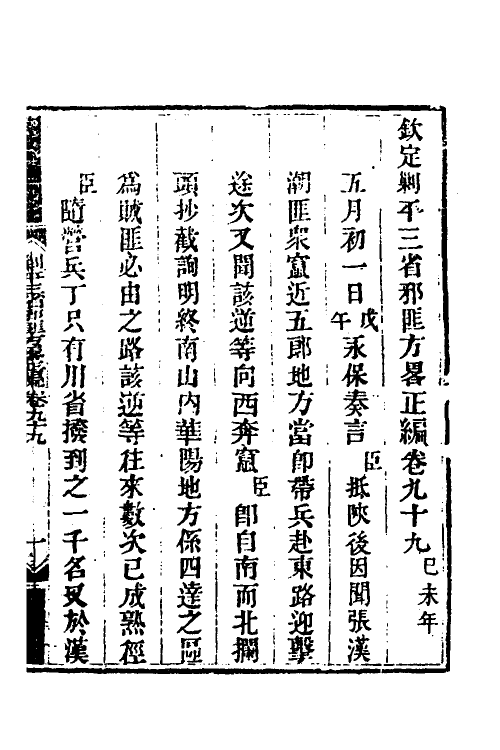 欽定剿平三省邪匪方畧正編卷九十九己未年
五月初一日戊午永保奏言臣抵陝後因聞張漢
潮匪衆竄近五郎地方當卽帶兵赴東路迎擊
途次又聞該逆等向西奔竄臣卽自南而北攔
頭抄截詢明終南山內華陽地方係四達之區
爲賊匪必由之路該逆等往來數次已成熟徑
臣隨營兵丁只有川省撥到之一千名又於漢
剿平三省邪匪方畧正編卷九十九